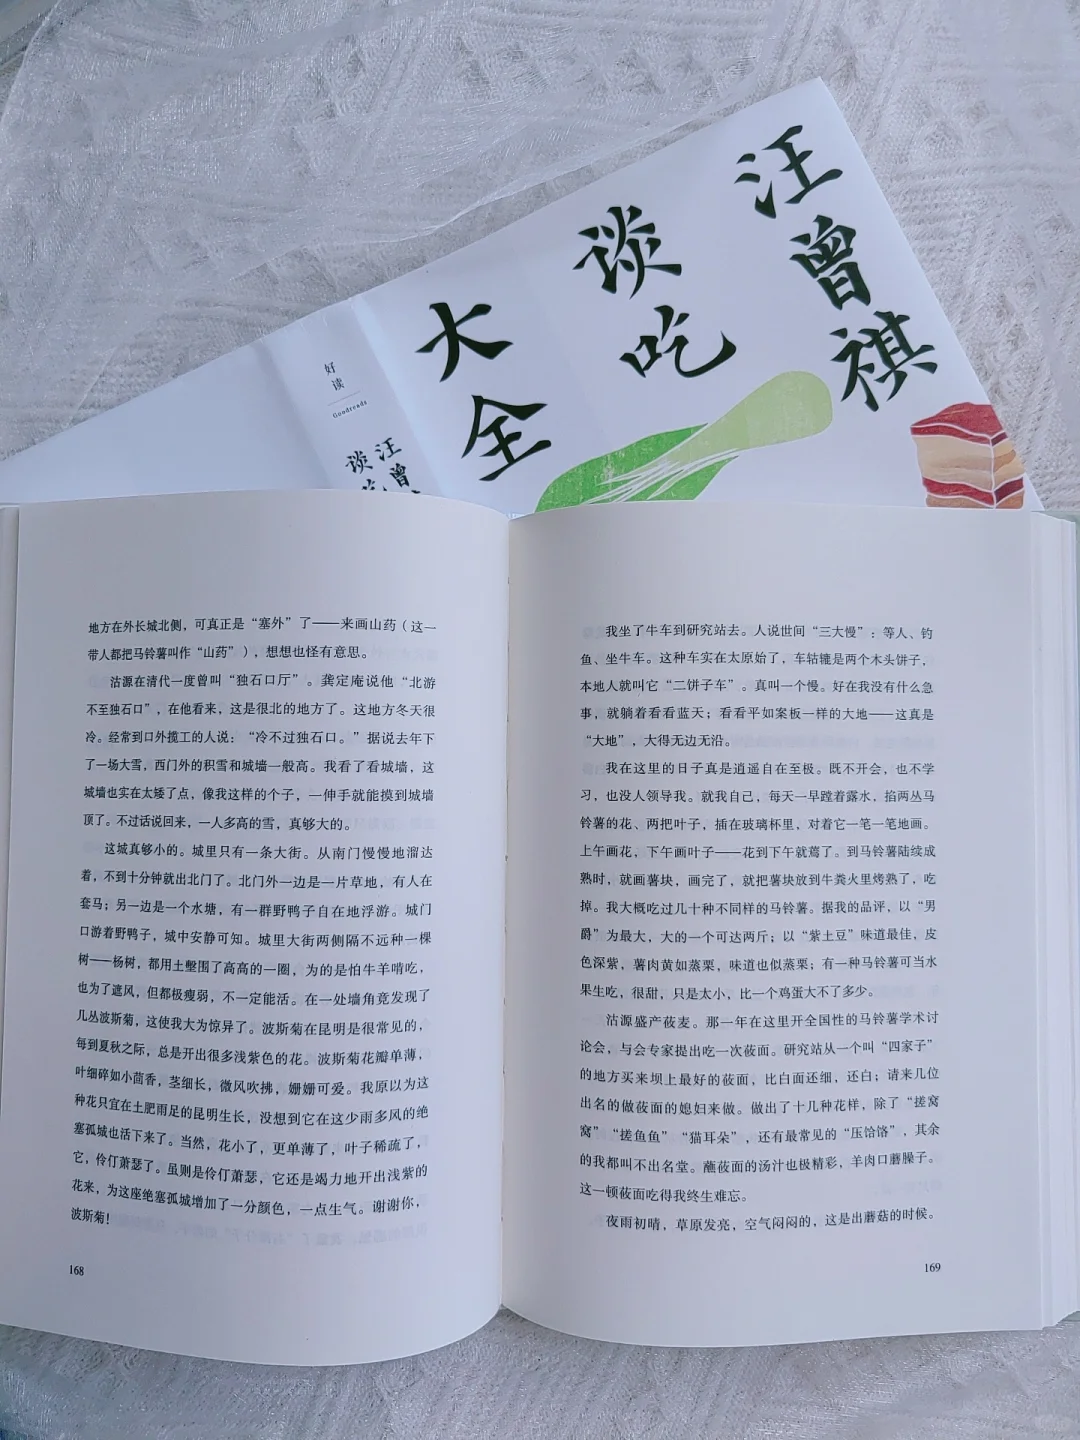 汪曾祺
谈吃
大全
好读
Goodreads
汪曾
谈吃
地方在外长城北侧，可真正是“塞外”了——来画山药（这一
带人都把马铃薯叫作“山药”），想想也怪有意思。
沽源在清代一度曾叫“独石口厅”。龚定庵说他“北游
不至独石口”，在他看来，这是很北的地方了。这地方冬天很
冷。经常到口外揽工的人说：“冷不过独石口。”据说去年下
了一场大雪，西门外的积雪和城墙一般高。我看了看城墙，这
城墙也实在太矮了点，像我这样的个子，一伸手就能摸到城墙
顶了。不过话说回来，一人多高的雪，真够大的。
这城真够小的。城里只有一条大街。从南门慢慢地溜达
着，不到十分钟就出北门了。北门外一边是一片草地，有人在
套马；另一边是一个水塘，有一群野鸭子自在地浮游。城门
口游着野鸭子，城中安静可知。城里大街两侧隔不远种一棵
树——杨树，都用土墼围了高高的一圈，为的是怕牛羊啃吃，
也为了遮风，但都极瘦弱，不一定能活。在一处墙角竟发现了
几丛波斯菊，这使我大为惊异了。波斯菊在昆明是很常见的，
每到夏秋之际，总是开出很多浅紫色的花。波斯菊花瓣单薄，
叶细碎如小茴香，茎细长，微风吹拂，姗姗可爱。我原以为这
种花只宜在土肥雨足的昆明生长，没想到它在这少雨多风的绝
塞孤城也活下来了。当然，花小了，更单薄了，叶子稀疏了，
它，伶仃萧瑟了。虽则是伶仃萧瑟，它还是竭力地开出浅紫的
花来，为这座绝塞孤城增加了一分颜色，一点生气。谢谢你，
波斯菊！
168
我坐了牛车到研究站去。人说世间“三大慢”：等人、钓
鱼、坐牛车。这种车实在太原始了，车轱辘是两个木头饼子，
本地人就叫它“二饼子车”。真叫一个慢。好在我没有什么急
事，就躺着看看蓝天；看看平如案板一样的大地——这真是
“大地”，大得无边无沿。
我在这里的日子真是逍遥自在至极。既不开会，也不学
习，也没人领导我。就我自己，每天一早蹚着露水，掐两丛马
铃薯的花、两把叶子，插在玻璃杯里，对着它一笔一笔地画。
上午画花，下午画叶子——花到下午就蔫了。到马铃薯陆续成
熟时，就画薯块，画完了，就把薯块放到牛粪火里烤熟了，吃
掉。我大概吃过几十种不同样的马铃薯。据我的品评，以“男
爵”为最大，大的一个可达两斤；以“紫土豆”味道最佳，皮
色深紫，薯肉黄如蒸栗，味道也似蒸栗；有一种马铃薯可当水
果生吃，很甜，只是太小，比一个鸡蛋大不了多少。
沽源盛产莜麦。那一年在这里开全国性的马铃薯学术讨
论会，与会专家提出吃一次莜面。研究站从一个叫“四家子”
的地方买来坝上最好的莜面，比白面还细，还白；请来几位
出名的做莜面的媳妇来做。做出了十几种花样，除了“搓窝
窝”“搓鱼鱼”“猫耳朵”，还有最常见的“压饸饹”，其余
的我都叫不出名堂。蘸莜面的汤汁也极精彩，羊肉口蘑臊子。
这一顿莜面吃得我终生难忘。
夜雨初晴，草原发亮，空气闷闷的，这是出蘑菇的时候。
169